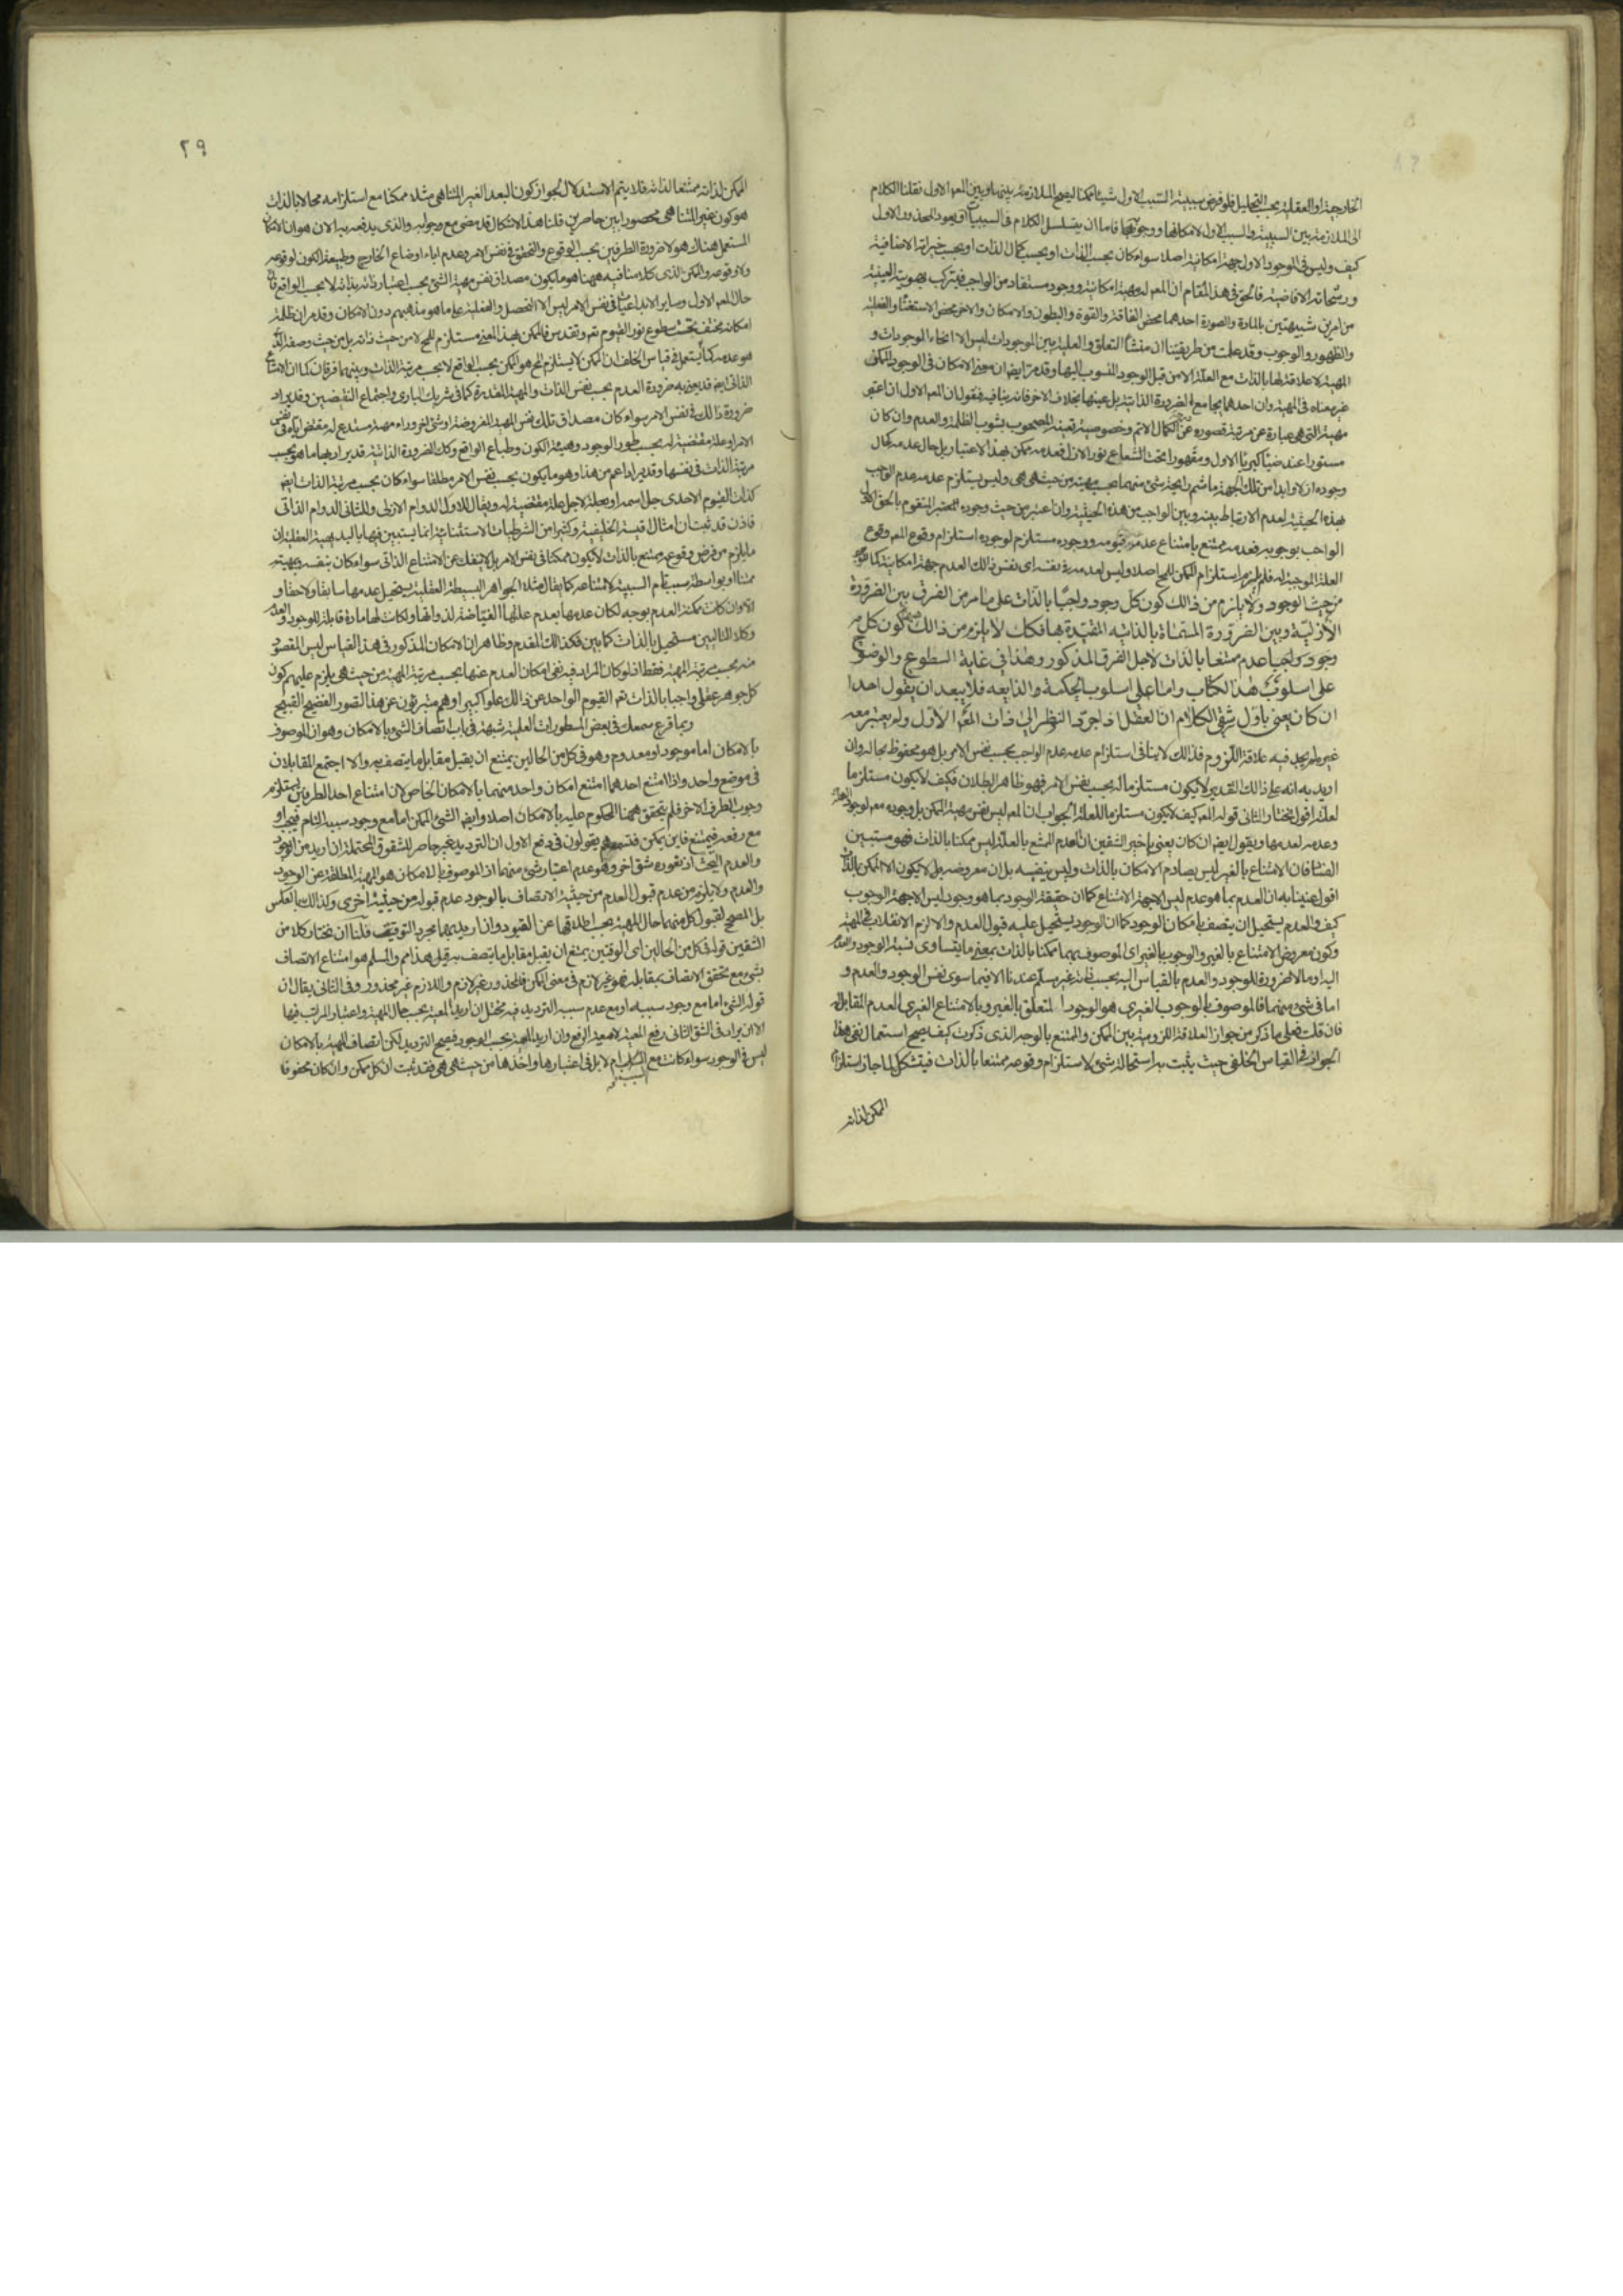 الخارجية او العقلية بحسب التحليل فلو فرض سببية السبب الاول شيئا ممكنا ليصح الملازمة بينهما وبين المعه الاول نقلنا الكلام
الى الملازمة بين السببية والسبب الاول لامكانها ووجوبها فاما ان يتسلسل الكلام فى السببيات او يعود المحذور الاول
كيف وليس فى الوجود الاول جهة امكانية اصلا سواء كان بحسب الذات او بحسب كمال الذات او بحسب خيراته الاضافية
ورشحاته الافاضية فالحق فى هذا المقام ان المعه له مهية امكانية ووجود مستفاد من الواجب فيتركب هويته العينية
من امرين شبيهتين بالمادة والصورة احدهما محض الفاقة والقوة والبطون والامكان والاخر محض الاستغناء والفعلية
والظهور والوجوب وقد علمت من طريقتنا ان منشأ التعلق والعلية بين الموجودات ليس الا انحاء الوجودات و
المهية لا علاقة لها بالذات مع العلة الا من قبل الوجود المنسوب اليها وقد مر ايضا ان معنى الامكان فى الوجود الممكن
غير معناه فى المهية وان احدهما يجامع الضرورة الذاتية بل عينها بخلاف الاخر فانه ينافيه فنقول ان المعه الاول ان اعتبر
مهيته التى هى عبارة عن مرتبة قصوره عن الكمال الاتم وخصوصية تعينه المصحوب بشوب الظلمة والعدم وان كان
مستورا عند ضياء كبرياء الاول ومقهورا تحت الشعاع نور الازل فعدمه ممكن بهذا الاعتبار بل حال عدمه كحال
وجوده ازلا وابدا من تلك الجهة ما شم رايحة شئ منهما بحسب مهيته من حيث هى هى وليس يستلزم عدمه عدم الواجب
بهذه الحيثية لعدم الارتباط بينه وبين الواجب من هذه الحيثية وان اعتبر من حيث وجوده المعتبر المتقوم بالحق الاول
الواجب بوجوبه فعدمه ممتنع بامتناع عدم قيومه ووجوده مستلزم لوجوده استلزام وقوع المعه وقوع
العلة الموجبة له فلم يلزم استلزام الممكن للمحال اصلا وليس لعدمه فى نفسه اى نفس ذلك العدم جهة امكانية كما للوجود
من حيث الوجود ولا يلزم من ذالك كون كل وجود واجبا بالذات على ما مر من الفرق بين الضرورة
الازلية وبين الضرورة المسماة بالذاتية المقيدة بها فكك لا يلزم من ذالك كون كل
وجود واجبا عدمه ممتنعا بالذات لاجل الفرق المذكور وهذا فى غاية السطوع والوضوح
على اسلوب هذا الكتاب واما على اسلوب الحكمة والذايعه فلا يبعد ان يقول احد
ان كان يعنى باول شقى الكلام ان العقل اذا جرد النظر الى ذات المعه الاول ولم يعتبر معه
غيره لم يجد فيه علاقة اللزوم فذالك لا ينافى استلزام عدمه عدم الواجب بحسب نفس الامر بل هو محفوظ بحاله وان
اريد به انه على ذالك التقدير لا يكون مستلزما له بحسب نفس الامر فهو ظاهر البطلان فكيف لا يكون مستلزما
لعلته اقول نختار الثانى قوله المعه كيف لا يكون مستلزما للعلة الجواب ان المعه ليس نفس مهية الممكن بل وجوده معه لوجود العلة
وعدمه لعدمها ويقول ايضا ان كان يعنى باخير الشقين ان العدم الممتنع بالعلة ليس ممكنا بالذات فهو مستبين
الفساد فان الامتناع بالغير ليس يصادم الامكان بالذات وليس ينفيه بل ان معروضه بل لا يكون الا الممكن بالذات
اقول عنينا به ان العدم بما هو عدم ليس الا جهة الامتناع كما ان حقيقة الوجود بما هو وجود ليس الا جهة الوجوب
كيف والعدم يستحيل ان يتصف بامكان الوجود كما ان الوجود يستحيل عليه قبول العدم والا لزم الانقلاب فى المهية
وكون معروض الامتناع بالغير والوجوب بالغير اى الموصوف بهما ممكنا بالذات بمعنى ما يتساوى نسبة الوجود والعدم
اليه او ما لا ضرورة للوجود والعدم بالقياس اليه بحسب ذاته غير مسلم عندنا الا فيما سوى نفس الوجود والعدم و
اما فى شئ منهما فالموصوف بالوجوب الغيرى هو الوجود المتعلق بالغير وبالامتناع الغيرى العدم المقابل له
فان قلت فعلى ما ذكر من جواز العلاقة اللزومية بين الممكن والممتنع بالوجه الذى ذكرت كيف يصح استعمال نفى هذا
الجواز فى القياس الخلفى حيث يثبت به استحالة شئ لاستلزام وقوعه ممتنعا بالذات فيتشكل لما جاز استلزام
الممكن لذاته
٢٩
الممكن لذاته ممتنعا لذاته فلا يتم الاستدلال لجواز كون البعد الغير المتناهى مثلا ممكنا مع استلزامه محالا بالذات
هو كون غير المتناهى محصورا بين حاصرين قلنا هذا الاشكال قد مضى مع جوابه والذى يدفعه به الان هو ان الامكان
المستعمل هناك هو لا ضرورة الطرفين بحسب الوقوع والتحقق فى نفس الامر وعدم اباء اوضاع الخارج وطبيعة الكون لوقوعه
ولا وقوعه والممكن الذى كلامنا فيه ههنا هو ما يكون مصداقه نفس مهية الشئ بحسب اعتبار ذاته بذاته لا بحسب الواقع فان
حال المعه الاول وساير الابداعيات فى نفس الامر ليس الا التحصل والفعلية على ما هو مذهبهم دون الامكان وقد مر ان ظلمة
امكانه مختف تحت سطوع نور القيوم تعه وتقدس فالممكن بهذا المعنى مستلزم للمحال لا من حيث ذاته بل من حيث وصفه الذى
هو عدمه كما يستعمل فى قياس الخلف ان الممكن لا يستلزم المح هو الممكن بحسب الواقع لا بحسب مرتبة الذات وبينهما فرقان كما ان الامتناع
الذاتى ايضا قد يعنى به ضرورة العدم بحسب نفس الذات والمهية المقدرة كما فى شريك البارى واجتماع النقيضين وقد يراد
ضرورة ذالك فى نفس الامر سواء كان مصداقه تلك نفس المهية المفروضة او شئ اخر وراء مهيته مستدع له مقتض اياه فى نفس
الامر او علة مقتضية له بحسب طور الوجود وهيئة الكون وطباع الواقع وكك الضرورة الذاتية قد يراد بها ما هو بحسب
مرتبة الذات فى نفسها وقد يراد اعم من هذا وهو ما يكون بحسب نفس الامر مطلقا سواء كان بحسب مرتبة الذات ايضا
كذات القيوم الاحدى جل اسمه او بعلة لاجل علة مقتضية له ويقال للاول الدوام الازلى وللثانى الدوام الذاتى
فاذن قد ثبت ان امثال اقيسة الخلفية وكثيرا من الشرطيات الاستثنائية انما يستبين فيها بالبديهية العقلية ان
ما يلزم من فرض وقوعه ممتنع بالذات لا يكون ممكنا فى نفس الامر بل لا ينفك عن الامتناع الذاتى سواء كان بنفسه وبمهيته
ممتنعا او بواسطة سبب تام السببية لامتناعه كما يقال مثلا الجواهر البسيطة العقلية يستحيل عدمها سابقا ولاحقا و
الا وان كانت ممكنة العدم بوجه لكان عدمها بعدم علتها الفياضة لذواتها ولكانت لها مادة قابلة للوجود والعدم
وكلا التاليين مستحيل بالذات كما بين فكذالك المقدم وظاهر ان الامكان المذكور فى هذا القياس ليس المقصود
منه بحسب مرتبة المهية فقط اذ لو كان المراد فيه نفى امكان العدم عنها بحسب مرتبة المهية من حيث هى يلزم عليهم كون
كل جوهر عقلى واجبا بالذات تعه القيوم الواحد عن ذالك علوا كبيرا وهم متبرؤن عن هذا التصور الفضيح القبيح
ربما قرع سمعك فى بعض المسطورات العلمية شبهة فى باب اتصاف الشئ بالامكان وهو ان الموصوف
بالامكان اما موجود او معدوم وهو فى كل من الحالين يمتنع ان يقبل مقابل ما يتصف به والا اجتمع المقابلان
فى موضوع واحد واذا امتنع احدهما امتنع امكان واحد منهما بالامكان الخاص لان امتناع احد الطرفين يستلزم
وجوب الطرف الاخر فلم يتحقق ههنا المحكوم عليه بالامكان اصلا وايضا الشئ الممكن اما مع وجود سببه التام فيجب او
مع رفعه فيمتنع فاين يمكن فتسمعهم يقولون فى دفع الاول ان الترديد غير حاصر للشقوق المحتملة ان اريد من الوجود
والعدم البحث اذ يعوزه شق اخر وهو عدم اعتبار شئ منهما اذ الموصوف بالامكان هو المهية المطلقة عن الوجود
والعدم ولا يلزم من عدم قبول العدم من حيثية الاتصاف بالوجود عدم قبوله من حيثية اخرى وكذالك بالعكس
بل المصحح لقبول كل منهما حال المهية بحسب اطلاقها عن القيود وان اريد بهما مجرد التوقيت قلنا ان نختار كلا من
الشقين قوله فكل من الحالين اى الوقتين يمتنع ان يقبل مقابل ما يتصف به قيل هذا مم والمسلم هو امتناع الاتصاف
بشئ مع تحقق الاتصاف بمقابله فهو غير لازم فى معنى الممكن فالمحذور غير لازم واللازم غير محذور وفى الثانى يقال ان
قوله الشئ اما مع وجود سببه او مع عدم سببه الترديد فيه مختل ان اريد المعية بحسب حال المهية واعتبار المراتب فيها
الا ان يراد فى الشق الثانى رفع المعية لا معية الرفع وان اريد المعية بحسب الوجود فصح الترديد لكن اتصاف المهية بالامكان
ليس فى الوجود سواء كانت مع السبب ام لا بل فى اعتبارها واخذها من حيث هى هى فقد ثبت ان كل ممكن وان كان محفوفا
السبب